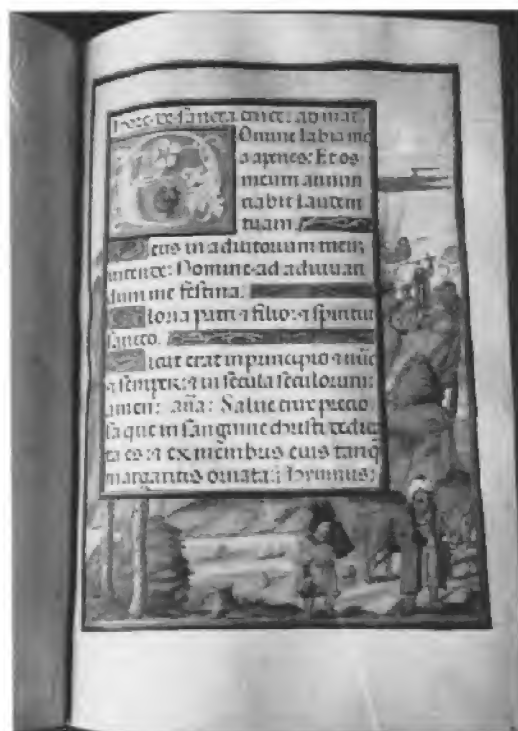 hore de sancta cruce: ad mat.
Domine labia me
a aperies: Et os
meum annun
tiabit laudem
tuam.
Deus in adiutorium meum
intende: Domine ad adiuuan
dum me festina.
Gloria patri ⁊ filio: ⁊ spiritui
sancto.
Sicut erat in principio ⁊ nūc
⁊ semper: ⁊ in secula seculorum
amen: aña: Salue crux precio
sa que in sanguine christi dedica
ta es: ⁊ ex membris eius tanq̄
margaritis ornata: Hymnus: